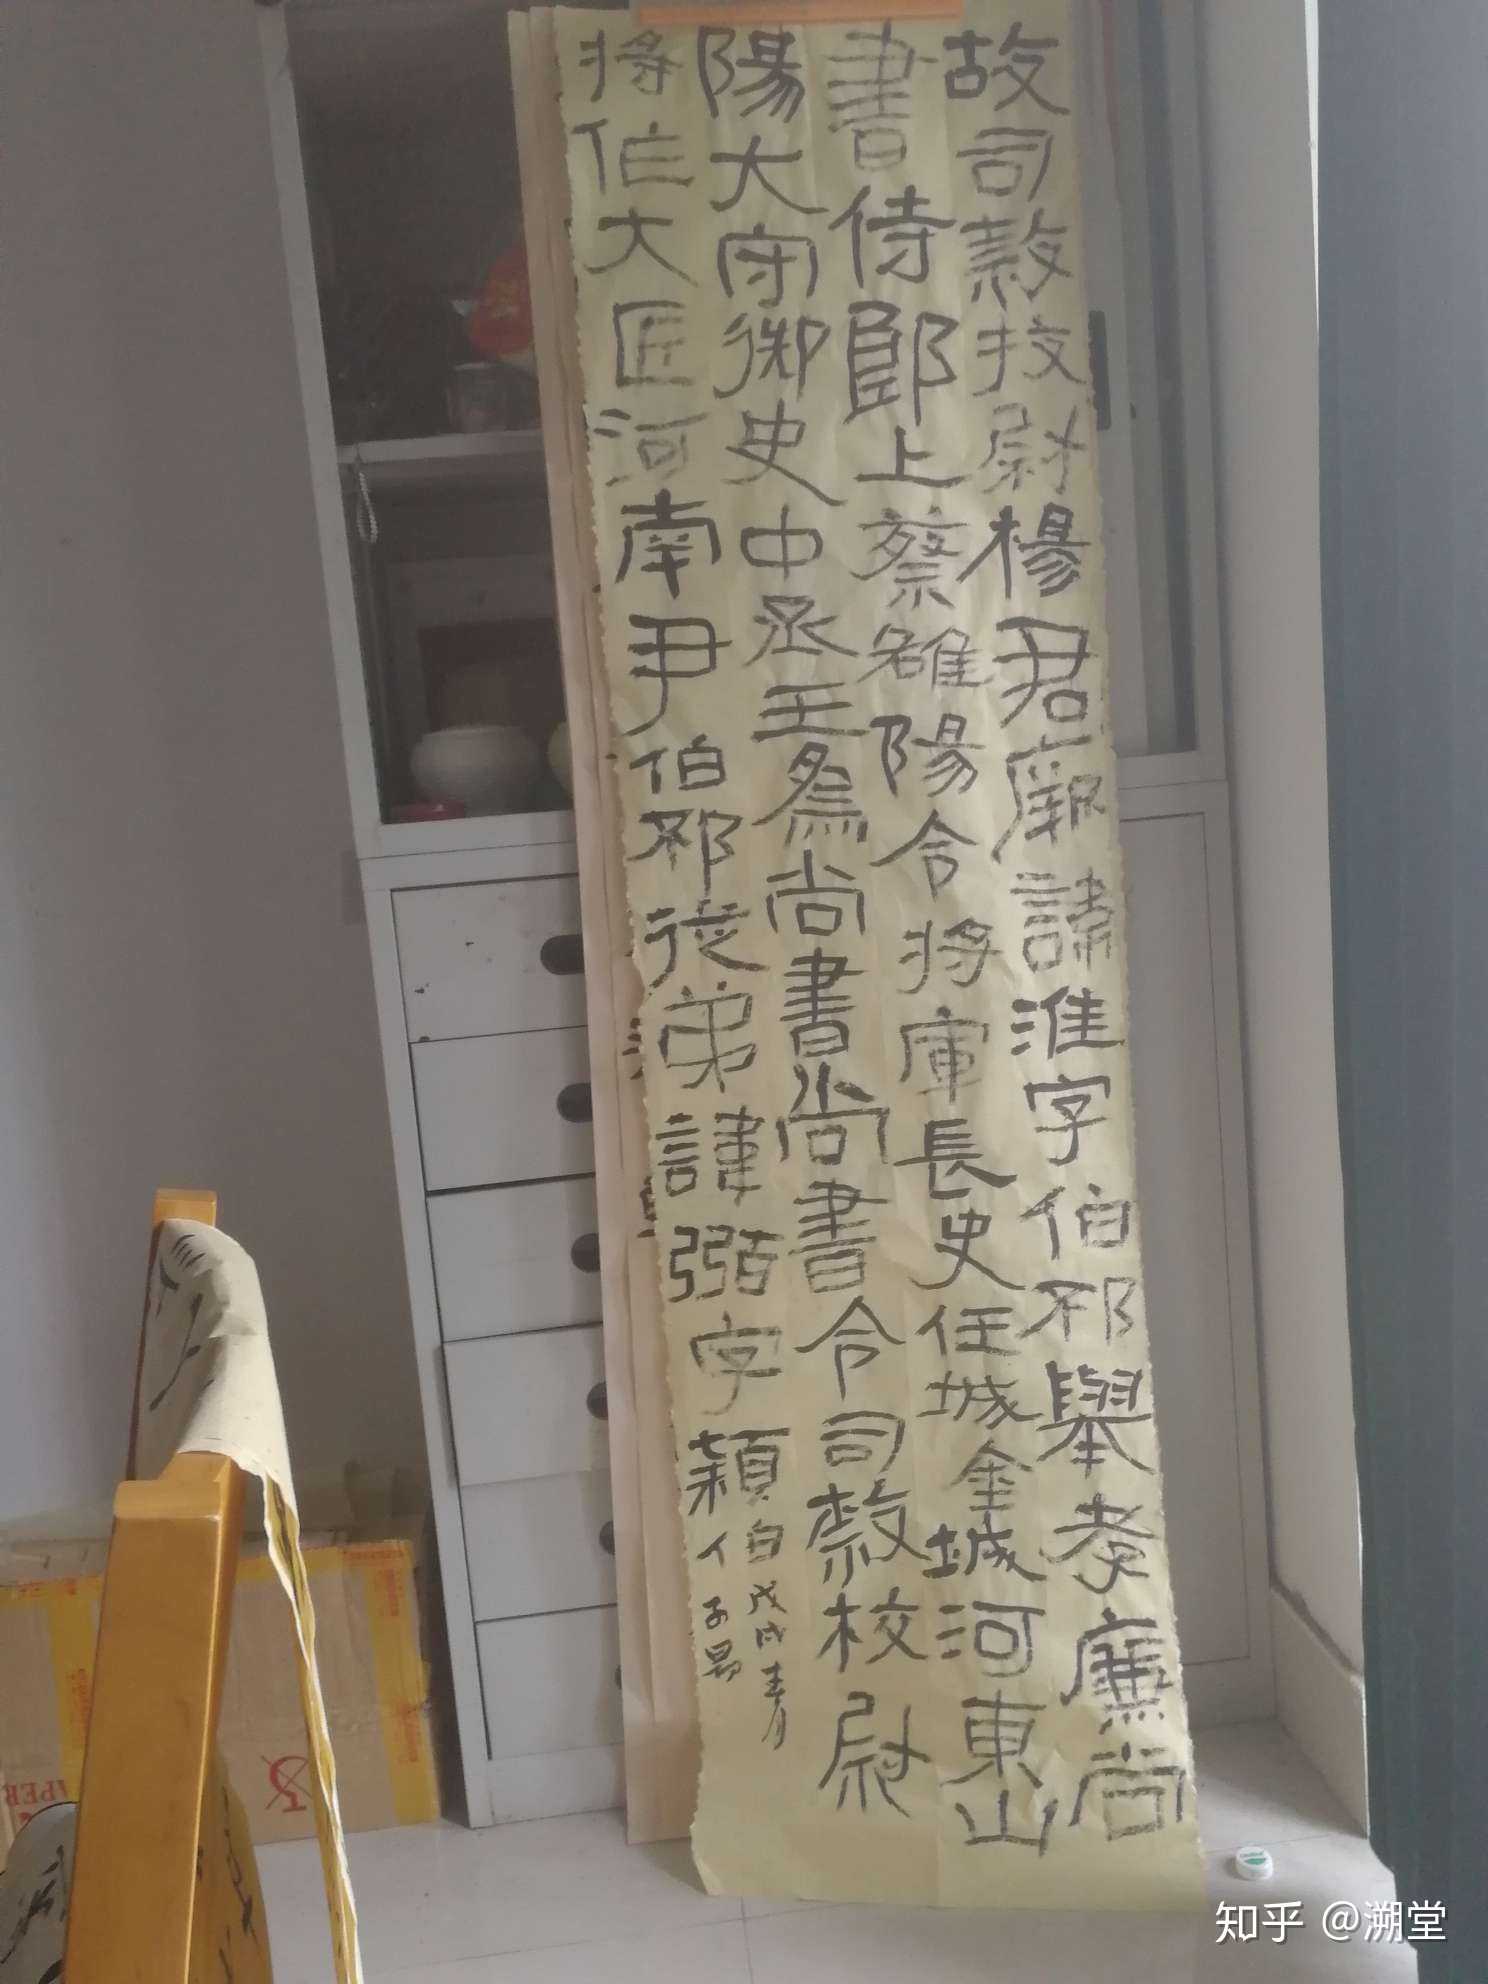 故司隸校尉楊君厥諱淮字伯邳舉孝廉尚
書侍郎上蔡雒陽令將軍長史任城金城河東山
陽大守御史中丞三為尚書尚書令司隸校尉
將作大匠河南尹伯邳從弟諱弼字穎伯
戊戌
知乎 @溯堂